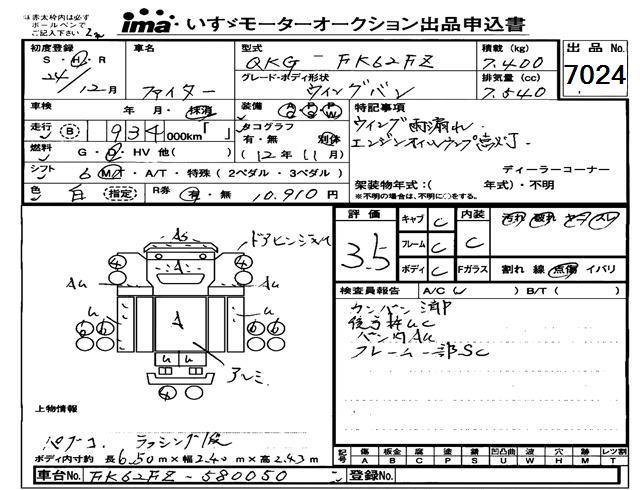 ※赤太枠内は必ず
ボールペンで
ご記入下さい
ima いすゞモーターオークション出品申込書
初度登録
S・H・R
24/12月
車名
ファイター
型式
QKG-FK62FZ
グレード・ボディ形状
ウイングバン
積載(kg)
7.400
排気量(cc)
7.540
出品No.
7024
車検 年・月・抹消
装備 AC PS PW
特記事項
ウイング雨漏れ
エンジンオイルランプ点灯.
走行 B 934 000km「 」
タコグラフ
有・無 別体
(12年11月)
燃料 G・D・HV 他( )
シフト 6 MT・A/T・特殊(2ペダル・3ペダル)
ディーラーコーナー
架装物年式:( 年式)・不明
※不明の場合は、不明に○をする。
色 白 指定 R券 有・無 10.910円
評価
3.5
キャブ C
フレーム C
ボディ C
内装
C
Fガラス 割れ 線 点傷 イバリ
検査員報告 A/C(✓) B/T( )
カンバン消印
バン内AU
フレーム一部SC
ドアヒンジ
As
A
Au
Au
u
u
A
u u
アルミ
4 4
6 6 6 6
4
上物情報
パブコ. ラッシング1段
ボディ内寸約 長6.50m×幅2.40m×高2.43m
記号 傷A 板金B 腐C 塗P 錆S 凹凸曲U 波W 穴H 跡M レツ割T
車台No. FK62FZ-580050
登録No.